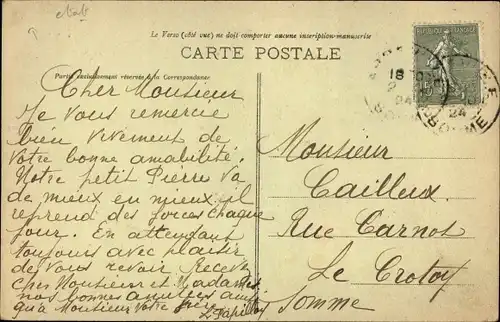 Le Verso (côté vue) ne doit comporter aucune inscription-manuscrite
CARTE POSTALE
Partie exclusivement réservée à la Correspondance
REPUBLIQUE FRANÇAISE
15
18
24
24
Cher Monsieur
Je vous remercie
bien vivement de
votre bonne amabilité.
Notre petit Pierre va
de mieux en mieux il
reprend des forces chaque
jour. En attendant
toujours avec plaisir
de vous revoir Recevez
cher Monsieur et Madame
nos bonnes amitiés ainsi
qu'a Monsieur Votre frère
Monsieur
Cailleux
Rue Carnot
Le Crotoy
Somme